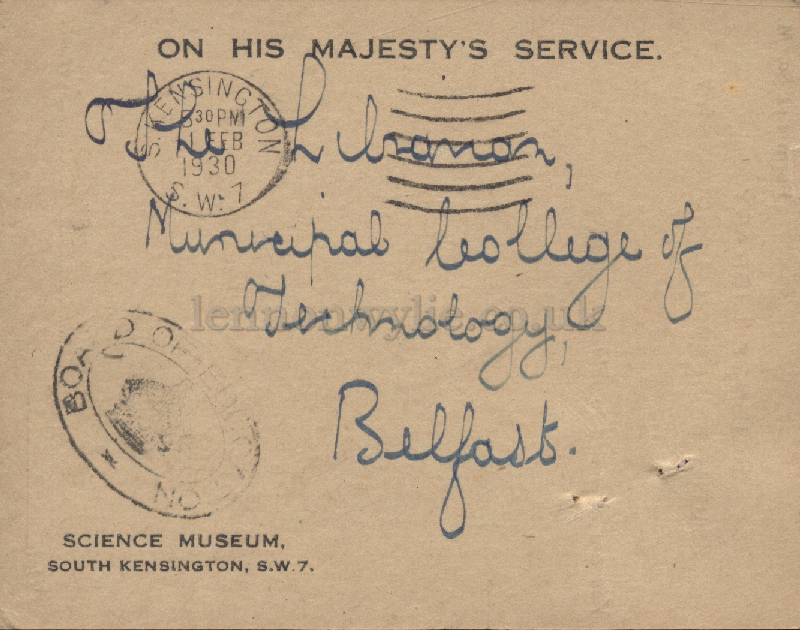 ON HIS MAJESTY'S SERVICE.
S. KENSINGTON
5 30 PM
1 FEB
1930
S.W. 7
The Librarian,
Municipal College of
Technology,
Belfast.
lennonwylie.co.uk
BOARD OF EDUCATION
SCIENCE MUSEUM,
SOUTH KENSINGTON, S.W.7.